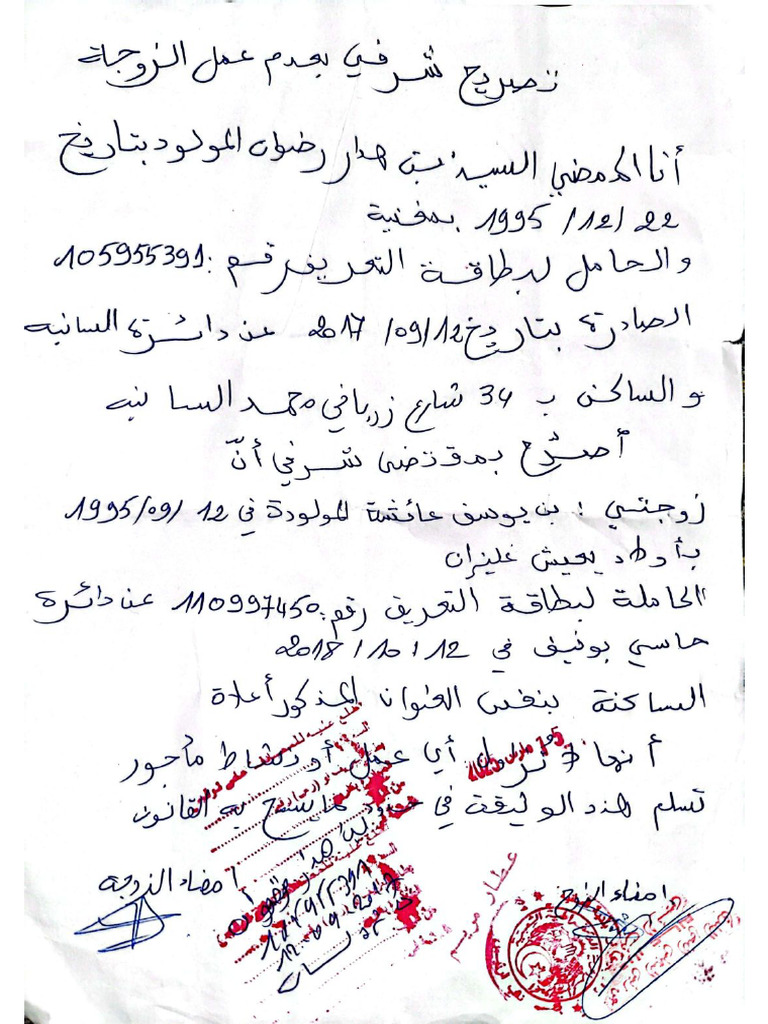 تصريح شرفي بعدم عمل الزوجة
أنا الممضي السيد: بن هدار رضوان المولود بتاريخ
22 /12/ 1995 بمغنية
والحامل لبطاقة التعريف رقم: 105955391
الصادرة بتاريخ 12/09/ 2017 عن دائرة السانيه
والساكن ب 34 شارع زرباني محمد السانيه
أصرّح بمقتضى شرفي أنّ
زوجتي: بن يوسف عائشة المولودة في 12 /09/1995
بأولاد يعيش غليزان
الحاملة لبطاقة التعريف رقم: 110997450 عن دائرة
حاسي بونيف في 12 /10/ 2018
الساكنة بنفس العنوان المذكور أعلاة
أنها لا تزاول أي عمل أو نشاط مأجور
تسلم هذه الوثيقة في حدود ما يسمح به القانون
امضاء الزوج
امضاء الزوجة
15 مارس 2025
عطار مريم